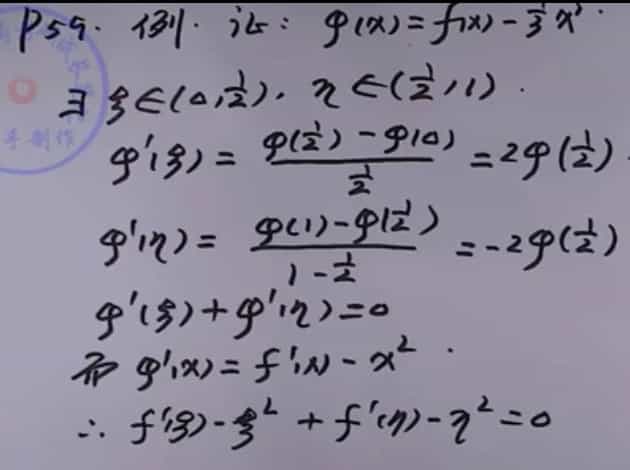 P59. 例. 证: φ(x)=f(x)-⅓x³.
∃ ξ∈(0,½), η∈(½,1).
φ'(ξ) = (φ(½)-φ(0))/(½) = 2φ(½).
φ'(η) = (φ(1)-φ(½))/(1-½) = -2φ(½)
φ'(ξ)+φ'(η)=0
而 φ'(x)=f'(x)-x².
∴ f'(ξ)-ξ²+f'(η)-η²=0
手制作